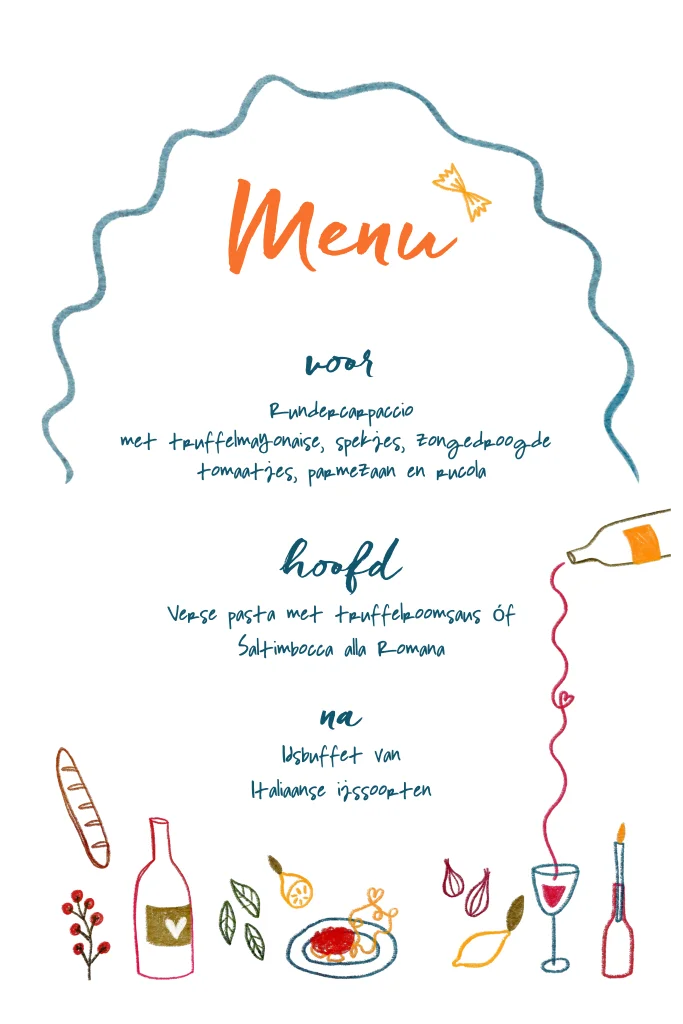 Menu
voor
Rundercarpaccio
met truffelmayonaise, spekjes, zongedroogde
tomaatjes, parmezaan en rucola
hoofd
Verse pasta met truffelroomsaus óf
Saltimbocca alla Romana
na
IJsbuffet van
Italiaanse ijssoorten